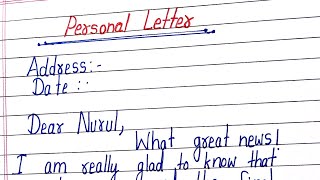 Personal Letter
Address:-
Date ::
Dear Nurul,
What great news!
I am really glad to know that